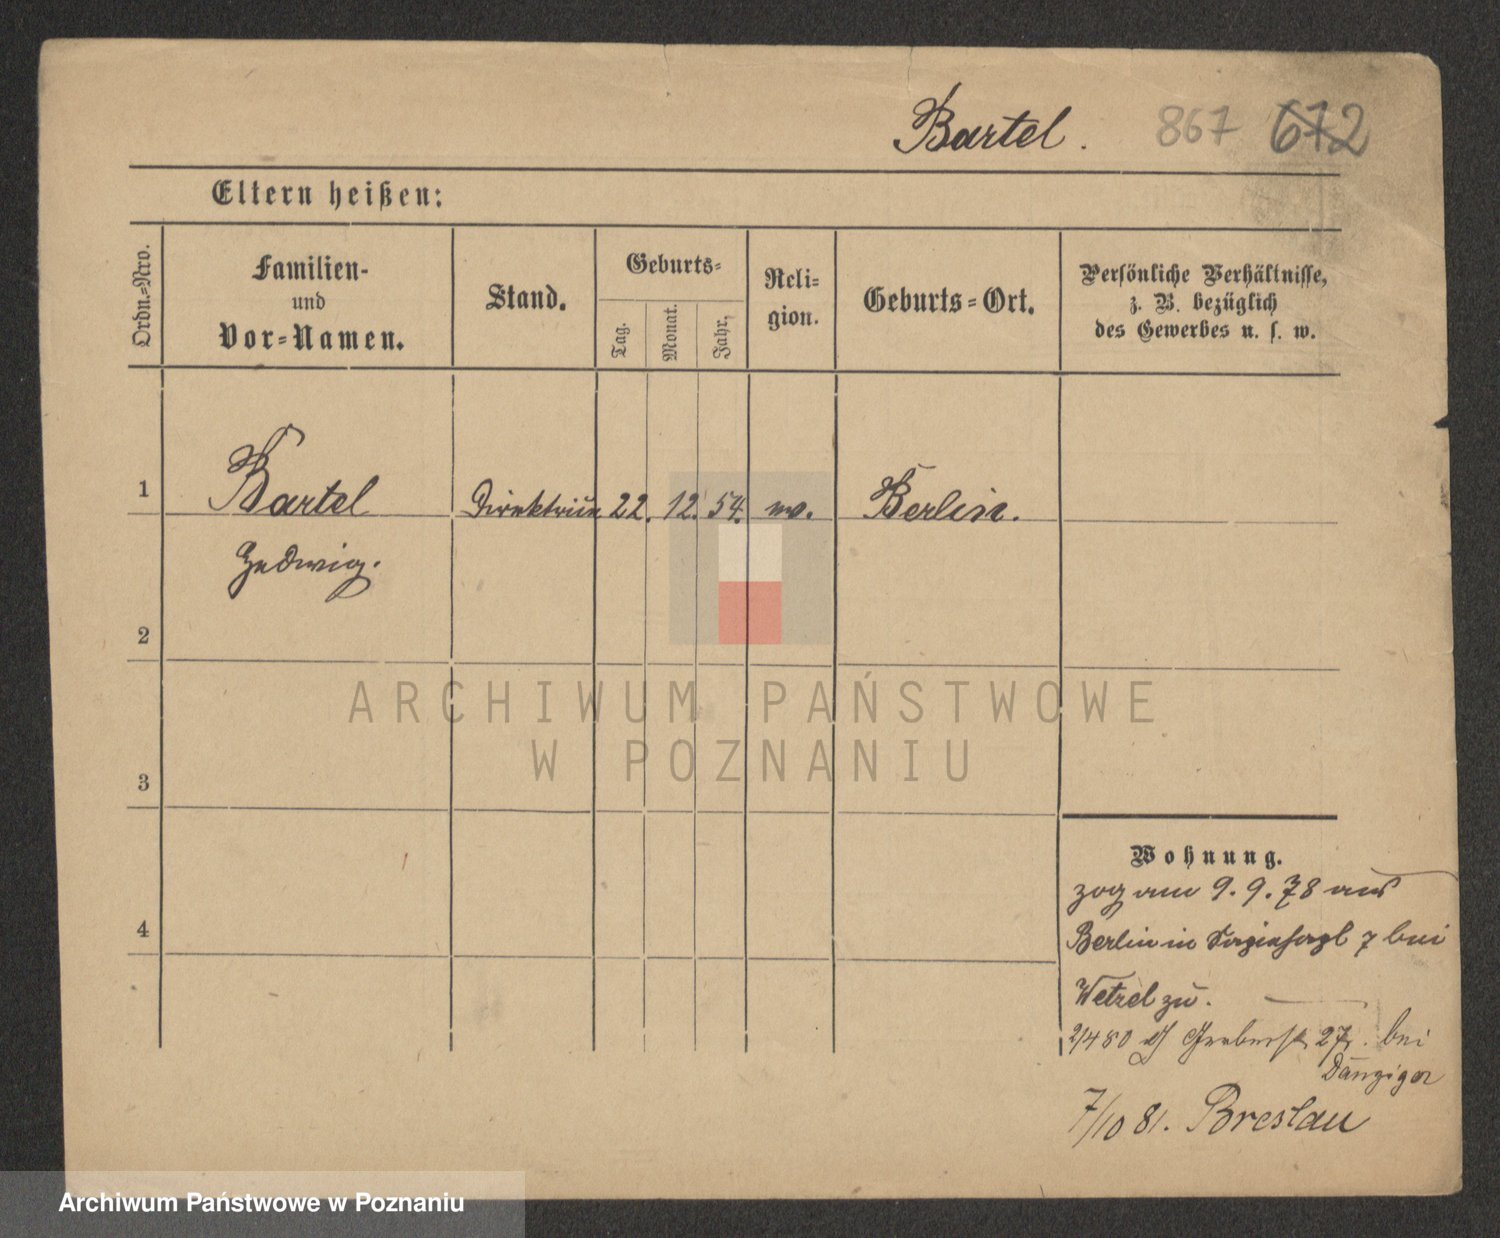 Bartel. 867 672
Eltern heißen:
Ordn.-Nro.
Familien-
und
Vor-Namen.
Stand.
Geburts-
Tag.
Monat.
Jahr.
Reli-
gion.
Geburts-Ort.
Persönliche Verhältnisse,
z. B. bezüglich
des Gewerbes u. s. w.
1 Bartel Direktrice 22. 12. 54. ev. Berlin.
Hedwig.
2
3
4
ARCHIWUM PAŃSTWOWE
W POZNANIU
Wohnung.
zog am 9. 9. 78 aus
Berlin in 7 bei
Wetzel zu.
2/4 80 27. bei
Danziger
7/10 81. Breslau
Archiwum Państwowe w Poznaniu